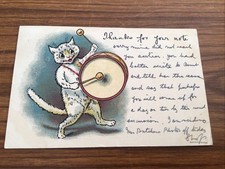 Thanks for your note
sorry mine did not reach
you earlier, you had
better write to Anne
and tell her the news,
and say that perhaps
you will come up for
a day or two by the next
excursion. I am sending